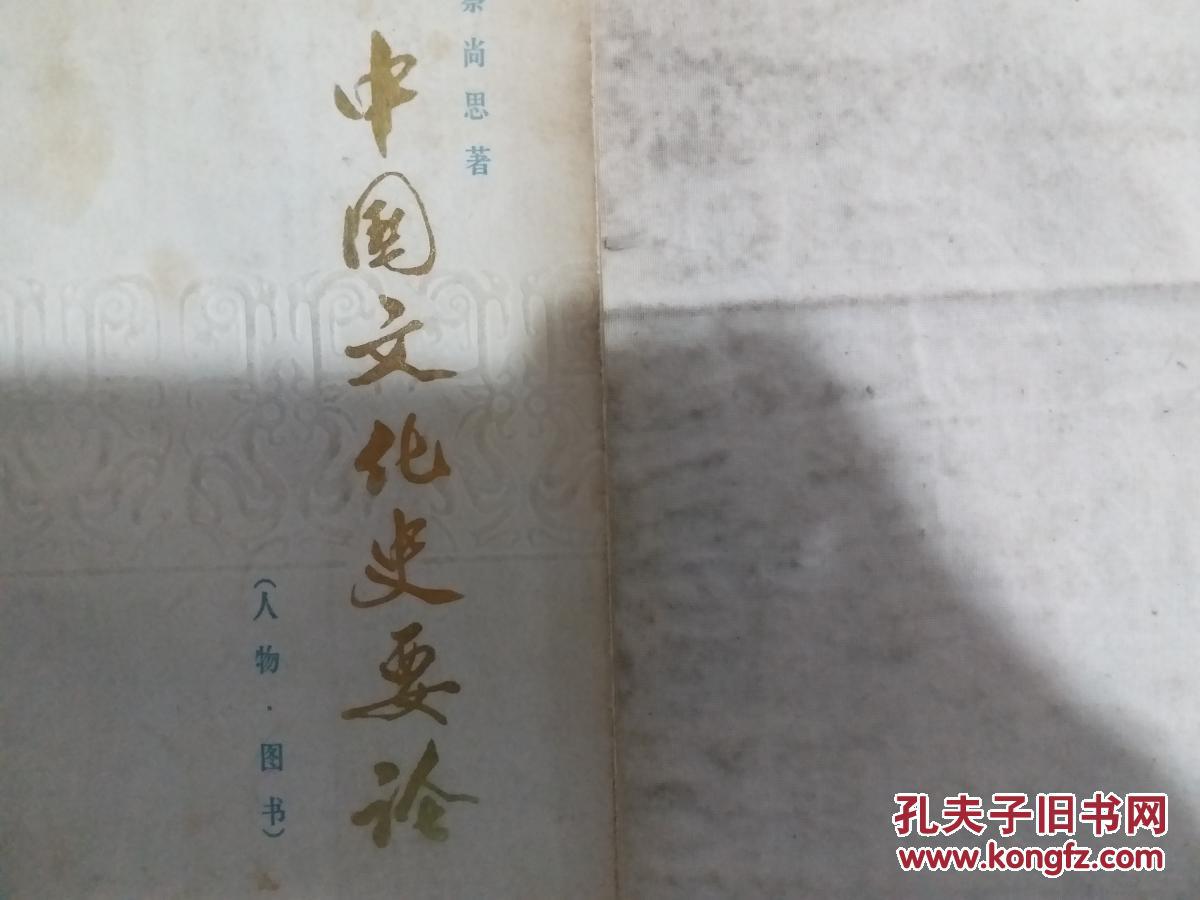 蔡尚思著
中国文化史要论
(人物·图书)
孔夫子旧书网
www.kongfz.com